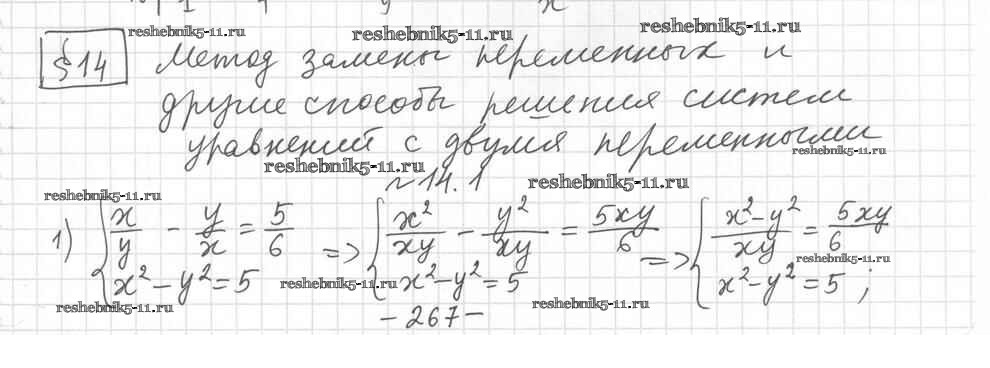 reshebnik5-11.ru reshebnik5-11.ru reshebnik5-11.ru
§14 Метод замены переменных и
другие способы решения систем
уравнений с двумя переменными
reshebnik5-11.ru reshebnik5-11.ru
№14.1 reshebnik5-11.ru
reshebnik5-11.ru
1) { x/y - y/x = 5/6 => { x²/xy - y²/xy = 5xy/6 => { x²-y²/xy = 5xy/6
x²-y²=5 reshebnik5-11.ru x²-y²=5 x²-y²=5 ; reshebnik5-11.ru
reshebnik5-11.ru reshebnik5-11.ru
-267-